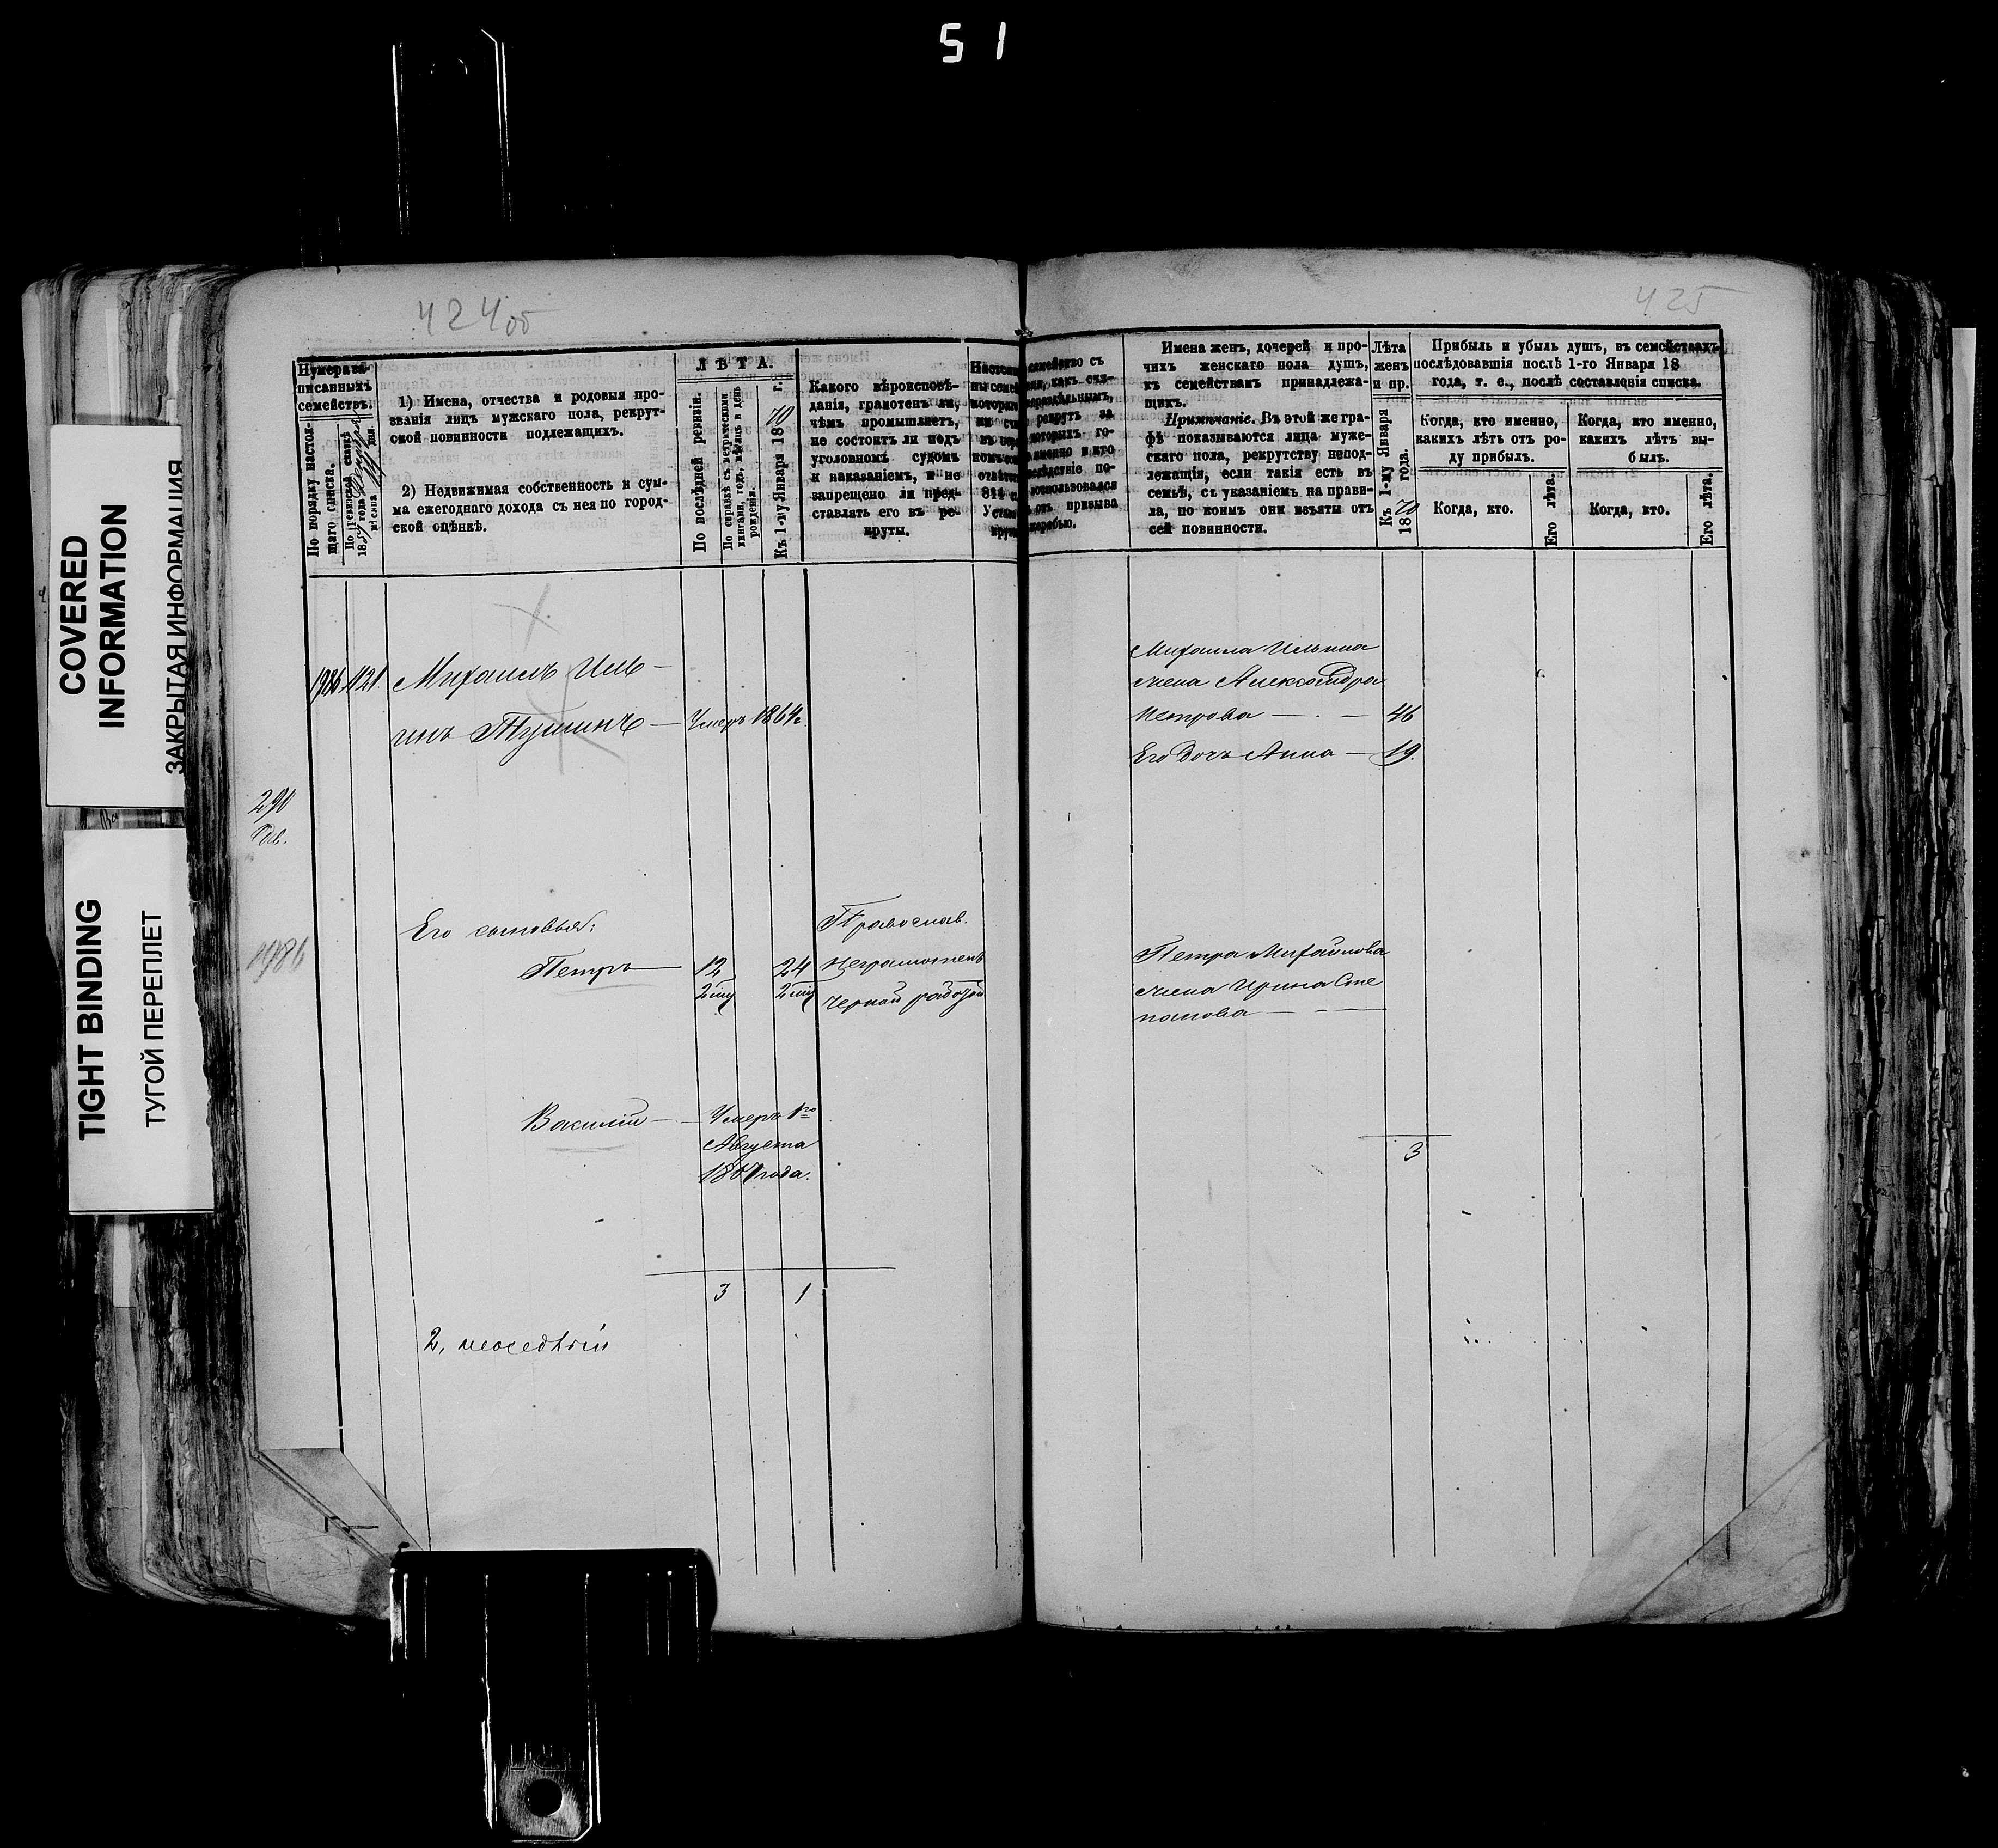 51
COVERED
INFORMATION
ЗАКРЫТАЯ ИНФОРМАЦИЯ
TIGHT BINDING
ТУГОЙ ПЕРЕПЛЕТ
424об
Нумера за-
писанныхъ
семействъ.
По порядку настоя-
щаго списка.
По ревизской сказкѣ
18 года
мѣсяца дня.
1) Имена, отчества и родовыя про-
званія лицъ мужскаго пола, рекрут-
ской повинности подлежащихъ.
2) Недвижимая собственность и сум-
ма ежегоднаго дохода съ нея по город-
ской оцѣнкѣ.
ЛѢТА.
По послѣдней ревизіи.
По справкѣ съ метрическими
книгами, годъ, мѣсяцъ и день
рожденія.
Къ 1-му Января 1870 г.
Какого вѣроисповѣ-
данія, грамотенъ ли,
чѣмъ промышляетъ,
не состоитъ ли подъ
уголовномъ судомъ
и наказаніемъ, и не
запрещено ли пред-
ставлять его въ ре-
круты.
1986 1121. Михаилъ Иль-
инъ Тушинъ — Умеръ 1864г.
290
1986
Его сыновья: Православ.
Петръ — 12 24 Неграмотенъ
Черной работой
Василій — Умеръ 1го
Августа
1867 года.
3 1
2, неоседлый
425
семейство съ
рекрутъ за
которыхъ го-
именно и кто
вслѣдствіе по-
воспользовался
отъ призыва
жеребью.
Имена женъ, дочерей и про-
чихъ женскаго пола душъ,
къ семействамъ принадлежа-
щихъ.
Примѣчаніе. Въ этой же гра-
фѣ показываются лица муже-
скаго пола, рекрутству непод-
лежащія, если такія есть въ
семьѣ, съ указаніемъ на прави-
ла, по коимъ они изъяты отъ
сей повинности.
Лѣта
женъ
и пр.
Къ 1-му Января
1870 года.
Прибыль и убыль душъ, въ семействахъ
послѣдовавшія послѣ 1-го Января 18
года, т. е., послѣ составленія списка.
Когда, кто именно,
какихъ лѣтъ отъ ро-
ду прибылъ.
Когда, кто.
Его лѣта.
Когда, кто именно,
какихъ лѣтъ вы-
былъ.
Когда, кто.
Его лѣта.
Михаила Ильина
жена Александра
Петрова — 46
Его дочь Анна — 19.
Петра Михайлова
жена Ирина Сте
панова —
3